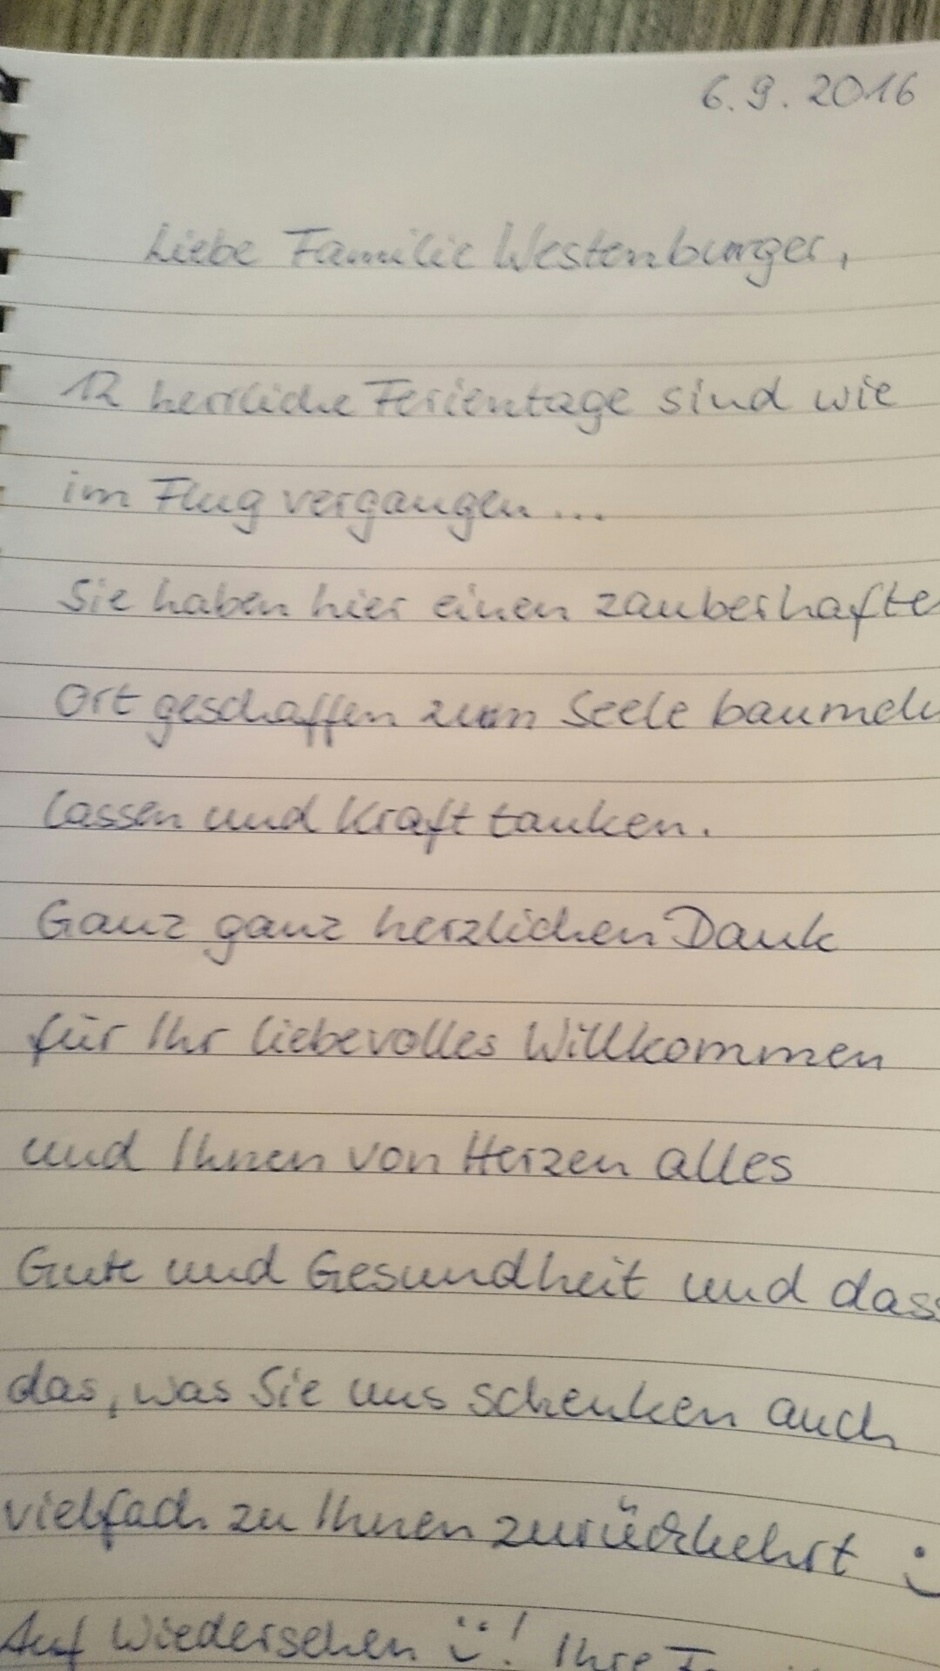 6.9.2016
Liebe Familie Westenburger,
12 herrliche Ferientage sind wie
im Flug vergangen...
Sie haben hier einen zauberhafte
Ort geschaffen zum Seele baumeln
lassen und Kraft tanken.
Ganz ganz herzlichen Dank
für Ihr liebevolles Willkommen
und Ihnen von Herzen alles
Gute und Gesundheit und dass
das, was Sie uns schenken auch
vielfach zu Ihnen zurückkehrt :)
Auf Wiedersehen :)! Ihre